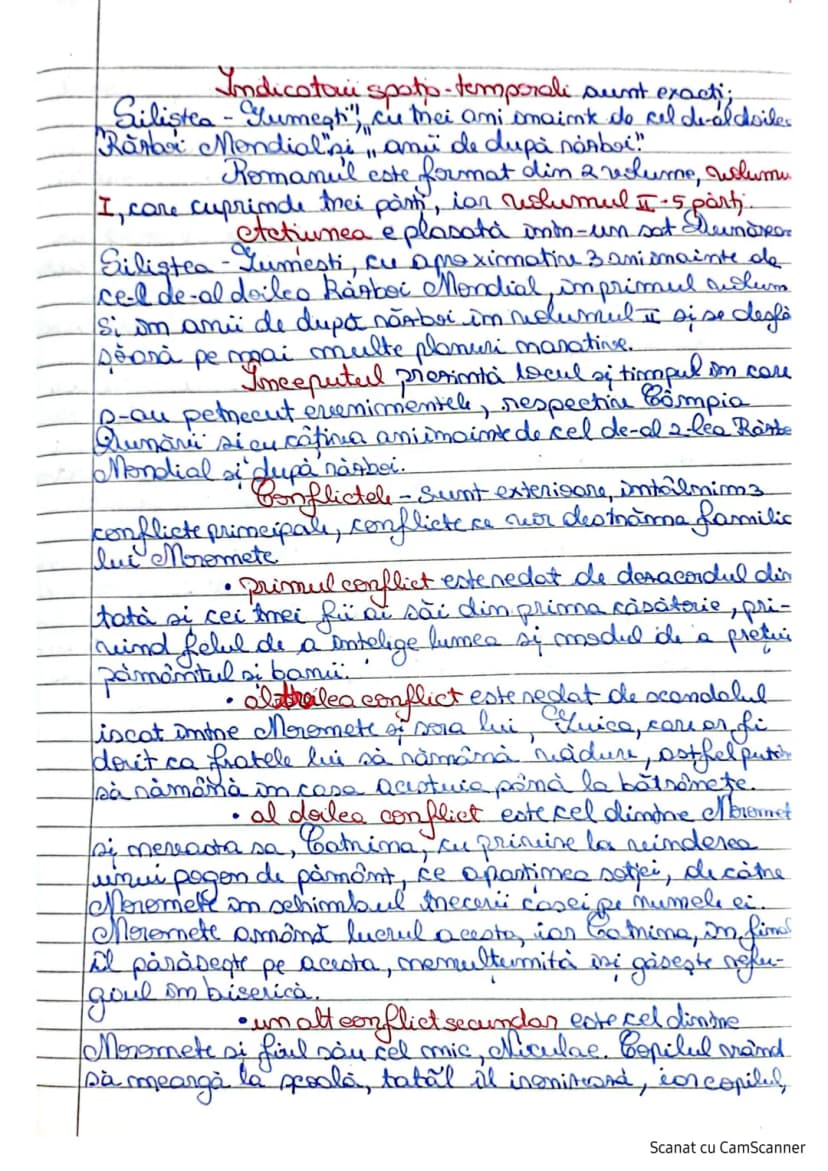 Indicatorii spațio-temporali sunt exacți;
Siliștea-Gumești", "cu trei ani înainte de cel de-al doilea
Război Mondial" și "anii de după război."
Romanul este format din 2 volume, volumu
I, care cuprinde trei părți, iar volumul II-5 părți.
Acțiunea e plasată într-un sat Dunărean
Siliștea-Gumești, cu aproximativ 3 ani înainte de
ce-l de-al doilea Război Mondial, în primul volum
și în anii de după război în volumul II și se desfă
șoară pe mai multe planuri narative.
Începutul prezintă locul și timpul în care
s-au petrecut evenimentele, respectiv Câmpia
Dunării și cu câțiva ani înainte de cel de-al 2-lea Războ
Mondial și după război.
Conflictele - Sunt exterioare, întâlnim 3
conflicte principale, conflicte ce vor destrăma familia
lui Moromete
• primul conflict este redat de dezacordul din
tată și cei trei fii ai săi din prima căsătorie, pri-
vind felul de a înțelege lumea și modul de a prețui
pământul și banii.
• al treilea conflict este redat de scandalul
iscat între Moromete și sora lui, Guica, care ar fi
dorit ca fratele lui să rămână văduv, astfel putân
să rămână în casa acestuia până la bătrânețe.
• al doilea conflict este cel dintre Moromet
și nevasta sa, Catrina, cu privire la vinderea
unui pogon de pământ, ce aparținea soției, de către
Moromete în schimbul trecerii casei pe numele ei.
Moromete amână lucrul acesta, iar Catrina, în final
îl părăsește pe acesta, nemulțumită își găsește refu-
goul în biserică.
• un alt conflict secundar este cel dintre
Moromete și fiul său cel mic, Niculae. Copilul vrând
să meargă la școală, tatăl îl ironizează, iar copilul,
Scanat cu CamScanner